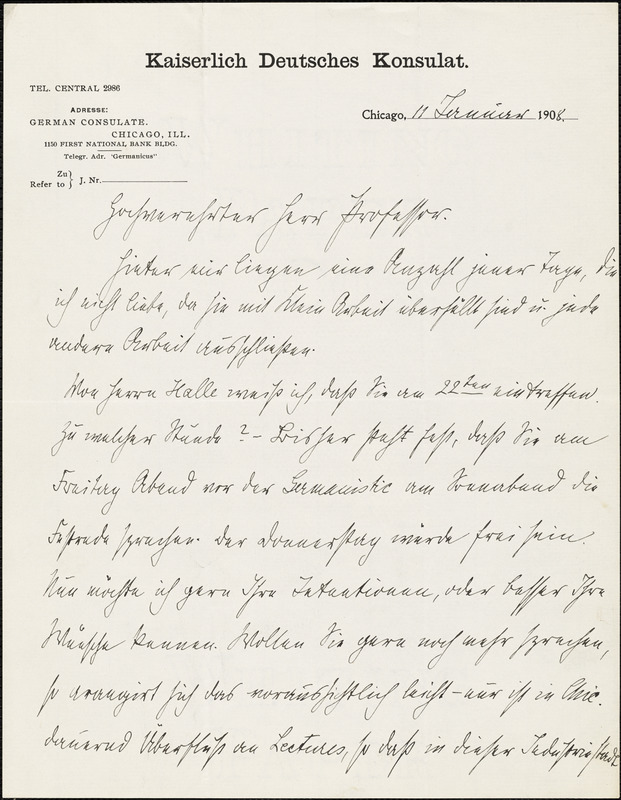 Kaiserlich Deutsches Konsulat.
TEL. CENTRAL 2986
ADRESSE:
GERMAN CONSULATE.
CHICAGO, ILL.
1150 FIRST NATIONAL BANK BLDG.
Telegr. Adr. "Germanicus"
Zu
Refer to } J. Nr.
Chicago, 11 Januar 1908.
Hochverehrter Herr Professor.
Hinter mir liegen eine Anzahl jener Tage, die
ich nicht liebe, da sie mit Klein Arbeit überfüllt sind u. jede
andere Arbeit ausschließen.
Von Herrn Halle weiß ich, daß Sie am 22ten eintreffen.
Zu welcher Stunde? – Bisher steht fest, daß Sie am
Freitag Abend vor der Germanistic am Sonnabend die
Festrede sprechen. Der Donnerstag würde frei sein.
Nun möchte ich gern Ihre Intentionen, oder besser Ihre
Wünsche kennen. Wollen Sie gern noch mehr sprechen,
so arangirt sich das voraussichtlich leicht – nur ist in Chic.
dauernd Überfluß an Lectures, so daß in dieser Industriestadt